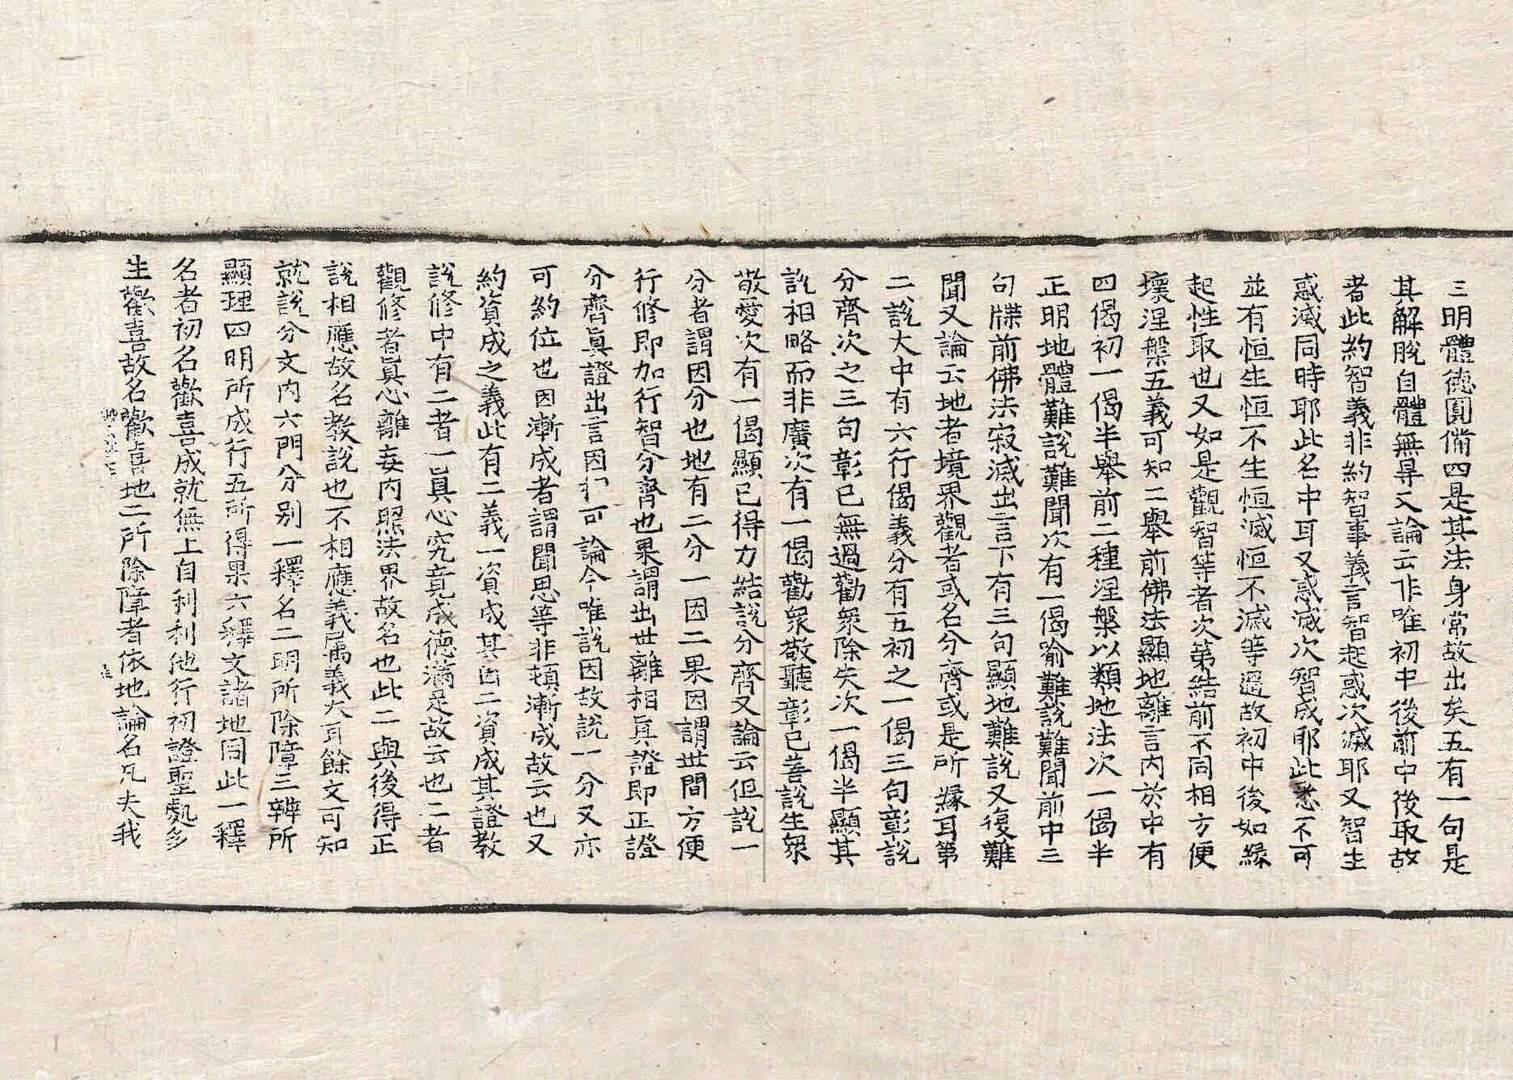 三明體德圓備四是其法身常故出矣五有一句是
其解脫自體無㝵又論云非唯初中後前中後取故
者此約智義非約智事義言智起惑次滅耶又智生
惑滅同時耶此名中耳又惑滅次智成耶此悉不可
並有恒生恒不生恒滅恒不滅等過故初中後如緣
起性取也又如是觀智等者次第結前不同相方便
壞涅槃五義可知二舉前佛法顯地離言內於中有
四偈初一偈半舉前二種涅槃以類地法次一偈半
正明地體難說難聞次有一偈喻難說難聞前中三
句牒前佛法寂滅出言下有三句顯地難說又復難
聞又論云地者境界觀者或名分齊或是所緣耳第
二說大中有六行偈義分有五初之一偈三句彰說
分齊次之三句彰已無過勸眾除失次一偈半顯其
說相略而非廣次有一偈勸眾敬聽彰已善說生眾
敬愛次有一偈顯已得力結說分齊又論云但說一
分者謂因分也地有二分一因二果因謂世間方便
行修即加行智分齊也果謂出世離相真證即正證
分齊真證出言因扣可論今唯說因故說一分又亦
可約位也因漸成者謂聞思等非頓漸成故云也又
約資成之義此有二義一資成其因二資成其證教
說修中有二者一真心究竟成德滿足故云也二者
觀修者真心離妄內照法界故名也此二與後得正
說相應故名教說也不相應義属義大耳餘文可知
就說分文內六門分別一釋名二明所除障三辨所
顯理四明所成行五所得果六釋文諸地同此一釋
名者初名歡喜成就無上自利利他行初證聖處多
生歡喜故名歡喜地二所除障者依地論名凡夫我